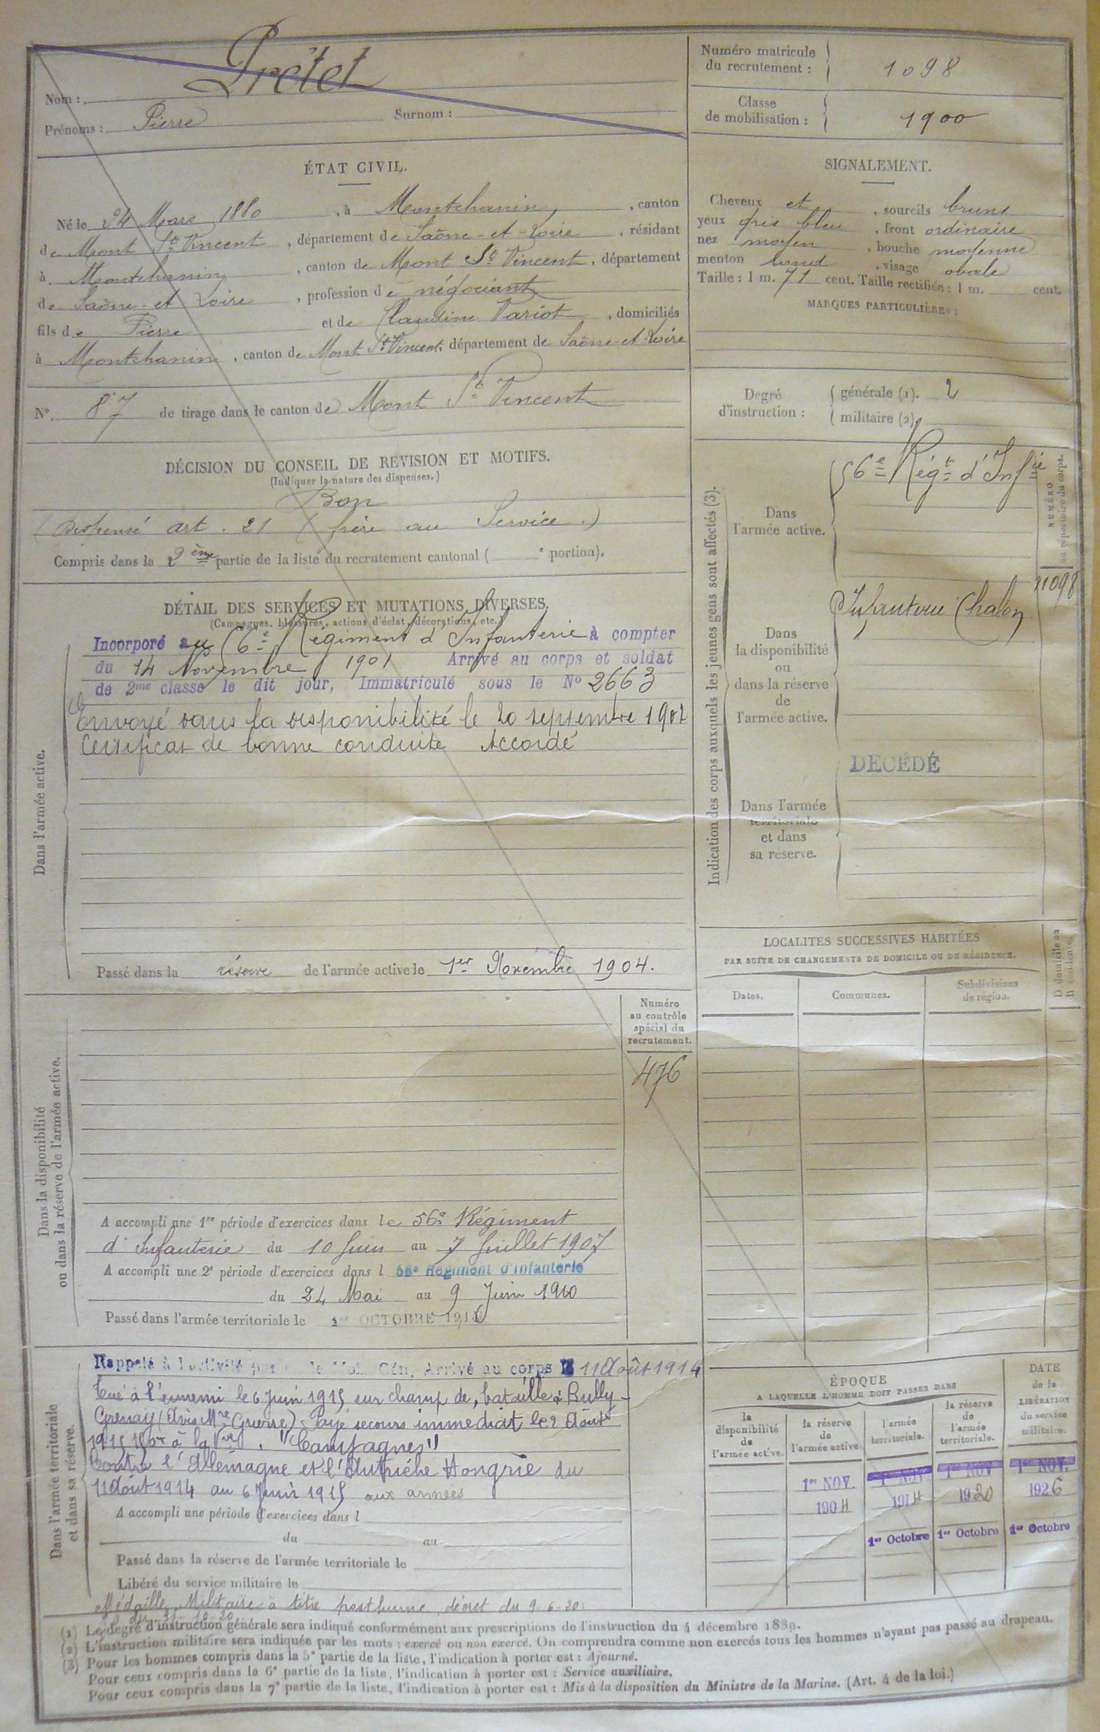 Nom : Prétet
Prénoms : Pierre Surnom :
Numéro matricule du recrutement : 1098
Classe de mobilisation : 1900
ÉTAT CIVIL.
Né le 24 Mars 1880, à Montchanin, canton
de Mont St Vincent, département de Saône-et-Loire, résidant
à Montchanin, canton de Mont St Vincent, département
de Saône-et-Loire, profession de négociant
fils de Pierre et de Claudine Variot, domiciliés
à Montchanin, canton de Mont St Vincent, département de Saône et Loire
N°. 87 de tirage dans le canton de Mont St Vincent
SIGNALEMENT.
Cheveux et sourcils bruns
yeux gris bleu, front ordinaire
nez moyen, bouche moyenne
menton rond, visage ovale
Taille : 1 m. 71 cent. Taille rectifiée : 1 m. cent.
MARQUES PARTICULIÈRES :
Degré d'instruction :
générale (1). 2
militaire (2).
DÉCISION DU CONSEIL DE REVISION ET MOTIFS.
(Indiquer la nature des dispenses.)
Bon
(Dispensé art. 21 (frère au Service.)
Compris dans la 2ème partie de la liste du recrutement cantonal ( e portion).
DÉTAIL DES SERVICES ET MUTATIONS DIVERSES.
(Campagnes, blessures, actions d'éclat, décorations, etc.)
Dans l'armée active.
Incorporé au 56e Régiment d'Infanterie à compter
du 14 Novembre 1901 Arrivé au corps et soldat
de 2me classe le dit jour, Immatriculé sous le No 2663
Envoyé dans la disponibilité le 20 septembre 1902
Certificat de bonne conduite Accordé
Passé dans la réserve de l'armée active le 1er Novembre 1904.
Indication des corps auxquels les jeunes gens sont affectés (3).
Dans l'armée active.
56e Régt d'Infie
NUMÉRO au répertoire du corps.
11098
Dans la disponibilité ou dans la réserve de l'armée active.
Infanterie Chalon
Dans l'armée territoriale et dans sa réserve.
DÉCÉDÉ
LOCALITÉS SUCCESSIVES HABITÉES
PAR SUITE DE CHANGEMENTS DE DOMICILE OU DE RÉSIDENCE.
Dates. Communes. Subdivisions de région. D domicile ou R résidence.
Dans la disponibilité ou dans la réserve de l'armée active.
Numéro au contrôle spécial du recrutement.
476
A accompli une 1re période d'exercices dans le 56e Régiment
d'Infanterie du 10 Juin au 7 Juillet 1907
A accompli une 2e période d'exercices dans l 56e Régiment d'Infanterie
du 24 Mai au 9 Juin 1910
Passé dans l'armée territoriale le 1er OCTOBRE 1914
Dans l'armée territoriale et dans sa réserve.
Rappelé à l'activité par Mob. Gén. Arrivé au corps le 11 Août 1914
Tué à l'ennemi le 6 Juin 1915, sur champ de bataille à Bully-
Grenay (Avis Mre Guerre). Paye secours immédiat le 2 Août
1915 à la Vve. "Campagnes"
Contre l'Allemagne et l'Autriche Hongrie du
11 Août 1914 au 6 Juin 1915 aux armées
A accompli une période d'exercices dans l
du au
Passé dans la réserve de l'armée territoriale le
Libéré du service militaire le
Médaille Militaire à titre posthume, décret du 9.6.20.
ÉPOQUE
A LAQUELLE L'HOMME DOIT PASSER DANS
la disponibilité de l'armée active. la réserve de l'armée active. l'armée territoriale. la réserve de l'armée territoriale. DATE de la LIBÉRATION du service militaire.
1er NOV. 1er NOV 1er NOV 1er NOV.
1904 1914 1920 1926
1er Octobre 1er Octobre 1er Octobre
(1) Le degré d'instruction générale sera indiqué conformément aux prescriptions de l'instruction du 4 décembre 1889.
(2) L'instruction militaire sera indiquée par les mots : exercé ou non exercé. On comprendra comme non exercés tous les hommes n'ayant pas passé au drapeau.
(3) Pour les hommes compris dans la 5e partie de la liste, l'indication à porter est : Ajourné.
Pour ceux compris dans la 6e partie de la liste, l'indication à porter est : Service auxiliaire.
Pour ceux compris dans la 7e partie de la liste, l'indication à porter est : Mis à la disposition du Ministre de la Marine. (Art. 4 de la loi.)